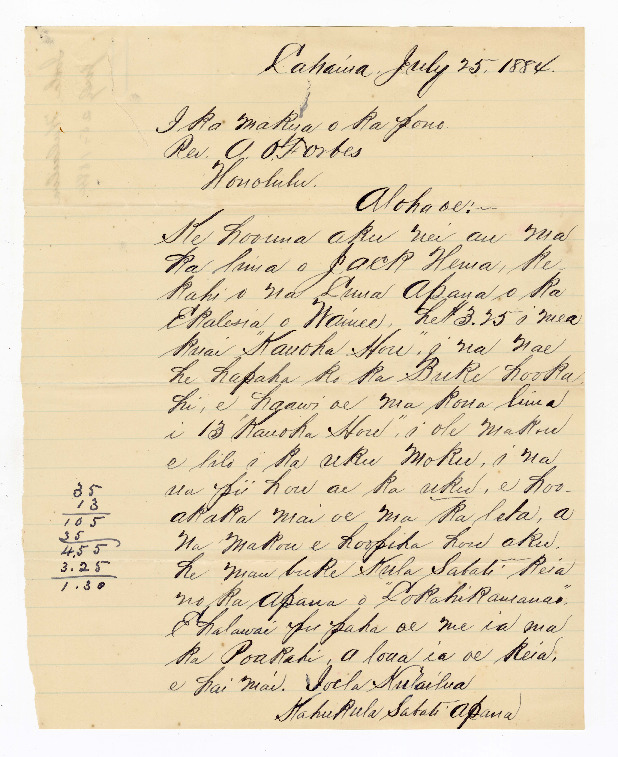 Lahaina, July 25, 1884.
I ka makua o ka pono
Rev. A. O. Forbes
Honolulu.
Aloha oe:—
Ke hoouna aku nei au ma
ka lima o Jack Hema, ke
kahi o na Luna Apana o ka
Ekalesia o Wainee, he $3.25 i mea
kuai "Kauoha Hou", i na nae
he hapaha ko ka Buke hooka
hi, e haawi oe ma kona lima
i 13 "Kauoha Hou", i ole makou
e lilo i ka uku moku, i na
ua pii hou ae ka uku, e hoo-
akaka mai oe ma ka leta, a
na makou e hoopiha hou aku.
he mau buke Kula Sabati keia
no ka apana o "Lokahikamanao".
E halawai pu paha oe me ia ma
ka Poakahi, a loaa ia oe keia,
e hai mai. Joela
Kahukula Sabati Apana
35
13
105
35
455
3.25
1.30